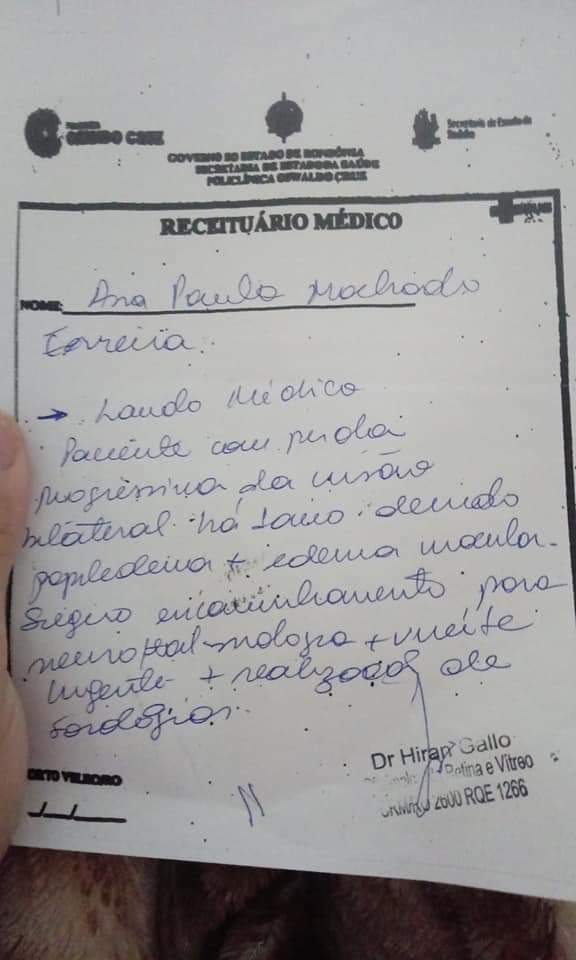 OSWALDO CRUZ
Secretaria de Estado da
GOVERNO DO ESTADO DE RONDÔNIA
SECRETARIA DE ESTADO DA SAÚDE
POLICLÍNICA OSWALDO CRUZ
RECEITUÁRIO MÉDICO
NOME: Ana Paula Machado
Ferreira.
→ Laudo Médico
Paciente com perda
progressiva da visão
bilateral há 1 ano devido
papiledema + edema macular.
Sugiro encaminhamento para
neuroftalmologia + urgente
+ realização de
sorologias.
PORTO VELHO/RO
__/__/__
Dr Hiran Gallo
Retina e Vítreo
2600 RQE 1266